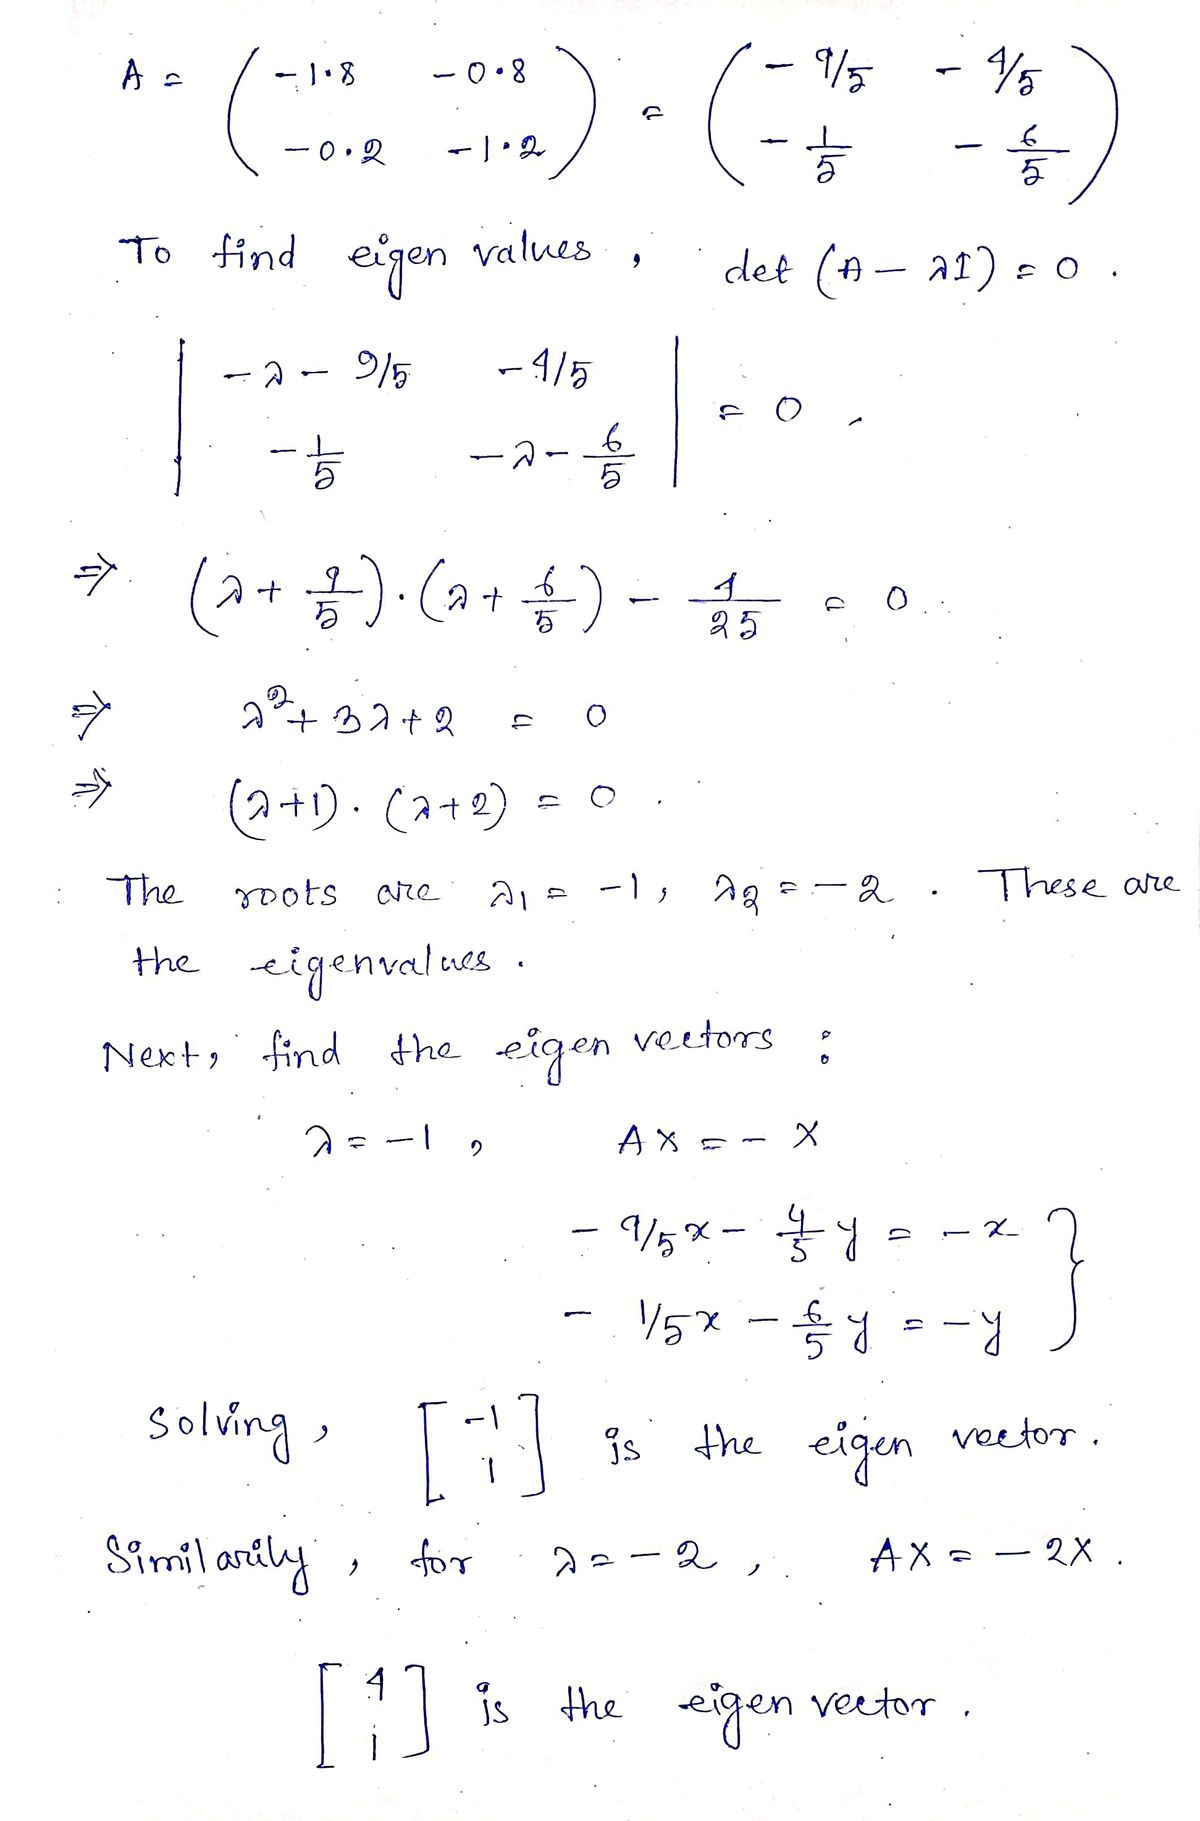 A = ( -1.8 -0.8 ; -0.2 -1.2 ) = ( -9/5 -4/5 ; -1/5 -6/5 )
To find eigen values, det (A - λI) = 0.
| -λ - 9/5 -4/5 ; -1/5 -λ - 6/5 | = 0,
⇒ (λ + 9/5).(λ + 6/5) - 4/25 = 0.
⇒ λ² + 3λ + 2 = 0
⇒ (λ+1).(λ+2) = 0.
The roots are λ1 = -1, λ2 = -2. These are
the eigenvalues.
Next, find the eigen vectors :
λ = -1, AX = - X
- 9/5x - 4/5 y = -x }
- 1/5x - 6/5 y = -y
Solving, [ -1 ; 1 ] is the eigen vector.
Similarily, for λ = -2, AX = - 2X.
[ 4 ; 1 ] is the eigen vector.